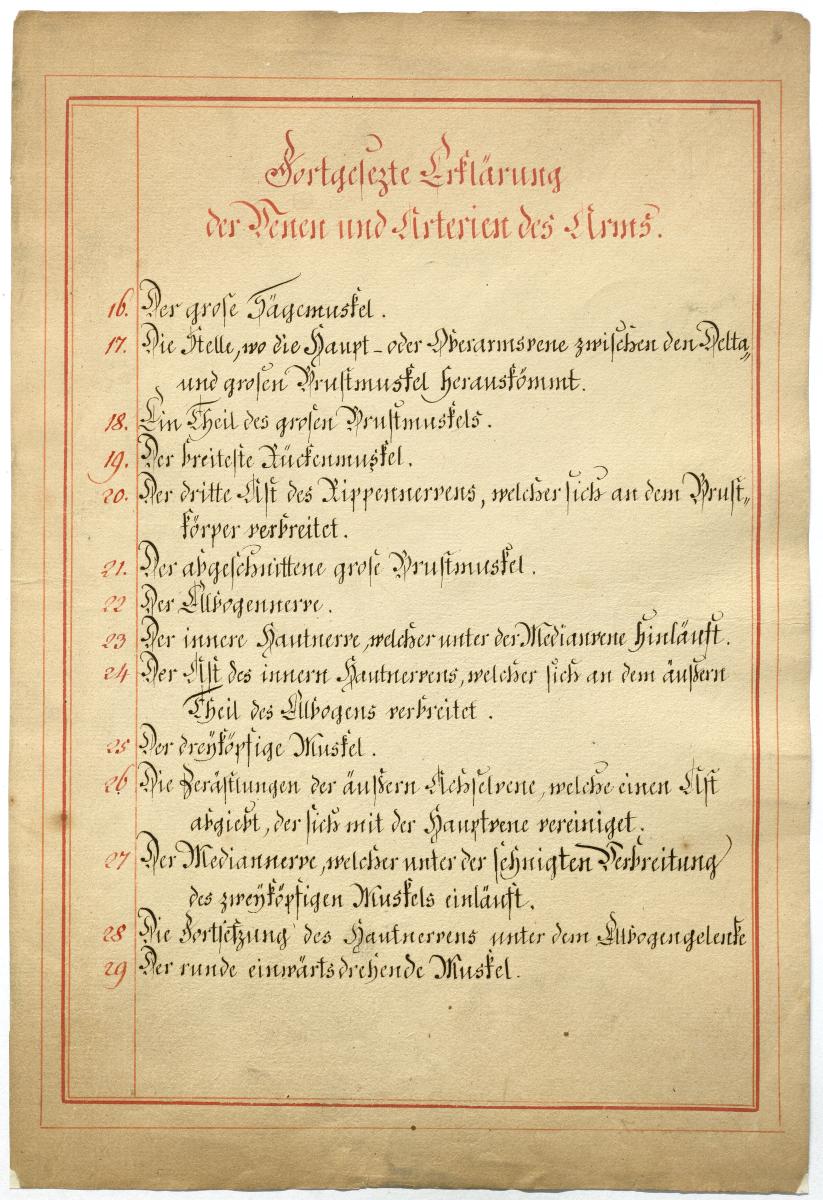 Fortgesezte Erklärung
der Venen und Arterien des Arms.
16. Der grose Sägemuskel.
17. Die Stelle, wo die Haupt- oder Oberarmsvene zwischen den Delta„
und grosen Brustmuskel herauskömmt.
18. Ein Theil des grosen Brustmuskels.
19. Der breiteste Rückenmuskel.
20. Der dritte Ast des Rippennervens, welcher sich an dem Brust„
körper verbreitet.
21. Der abgeschnittene grose Brustmuskel.
22 Der Ellbogennerve.
23 Der innere Hautnerve, welcher unter der Medianvene hinläuft.
24 Der Ast des innern Hautnervens, welcher sich an dem äußern
Theil des Ellbogens verbreitet.
25 Der dreyköpfige Muskel.
26 Die Zerästlungen der äußern Achselvene, welche einen Ast
abgiebt, der sich mit der Hauptvene vereiniget.
27 Der Mediannerve, welcher unter der sehnigten Verbreitung
des zweyköpfigen Muskels einläuft.
28 Die Fortsetzung des Hautnervens unter dem Ellbogengelenke
29 Der runde einwärtsdrehende Muskel.